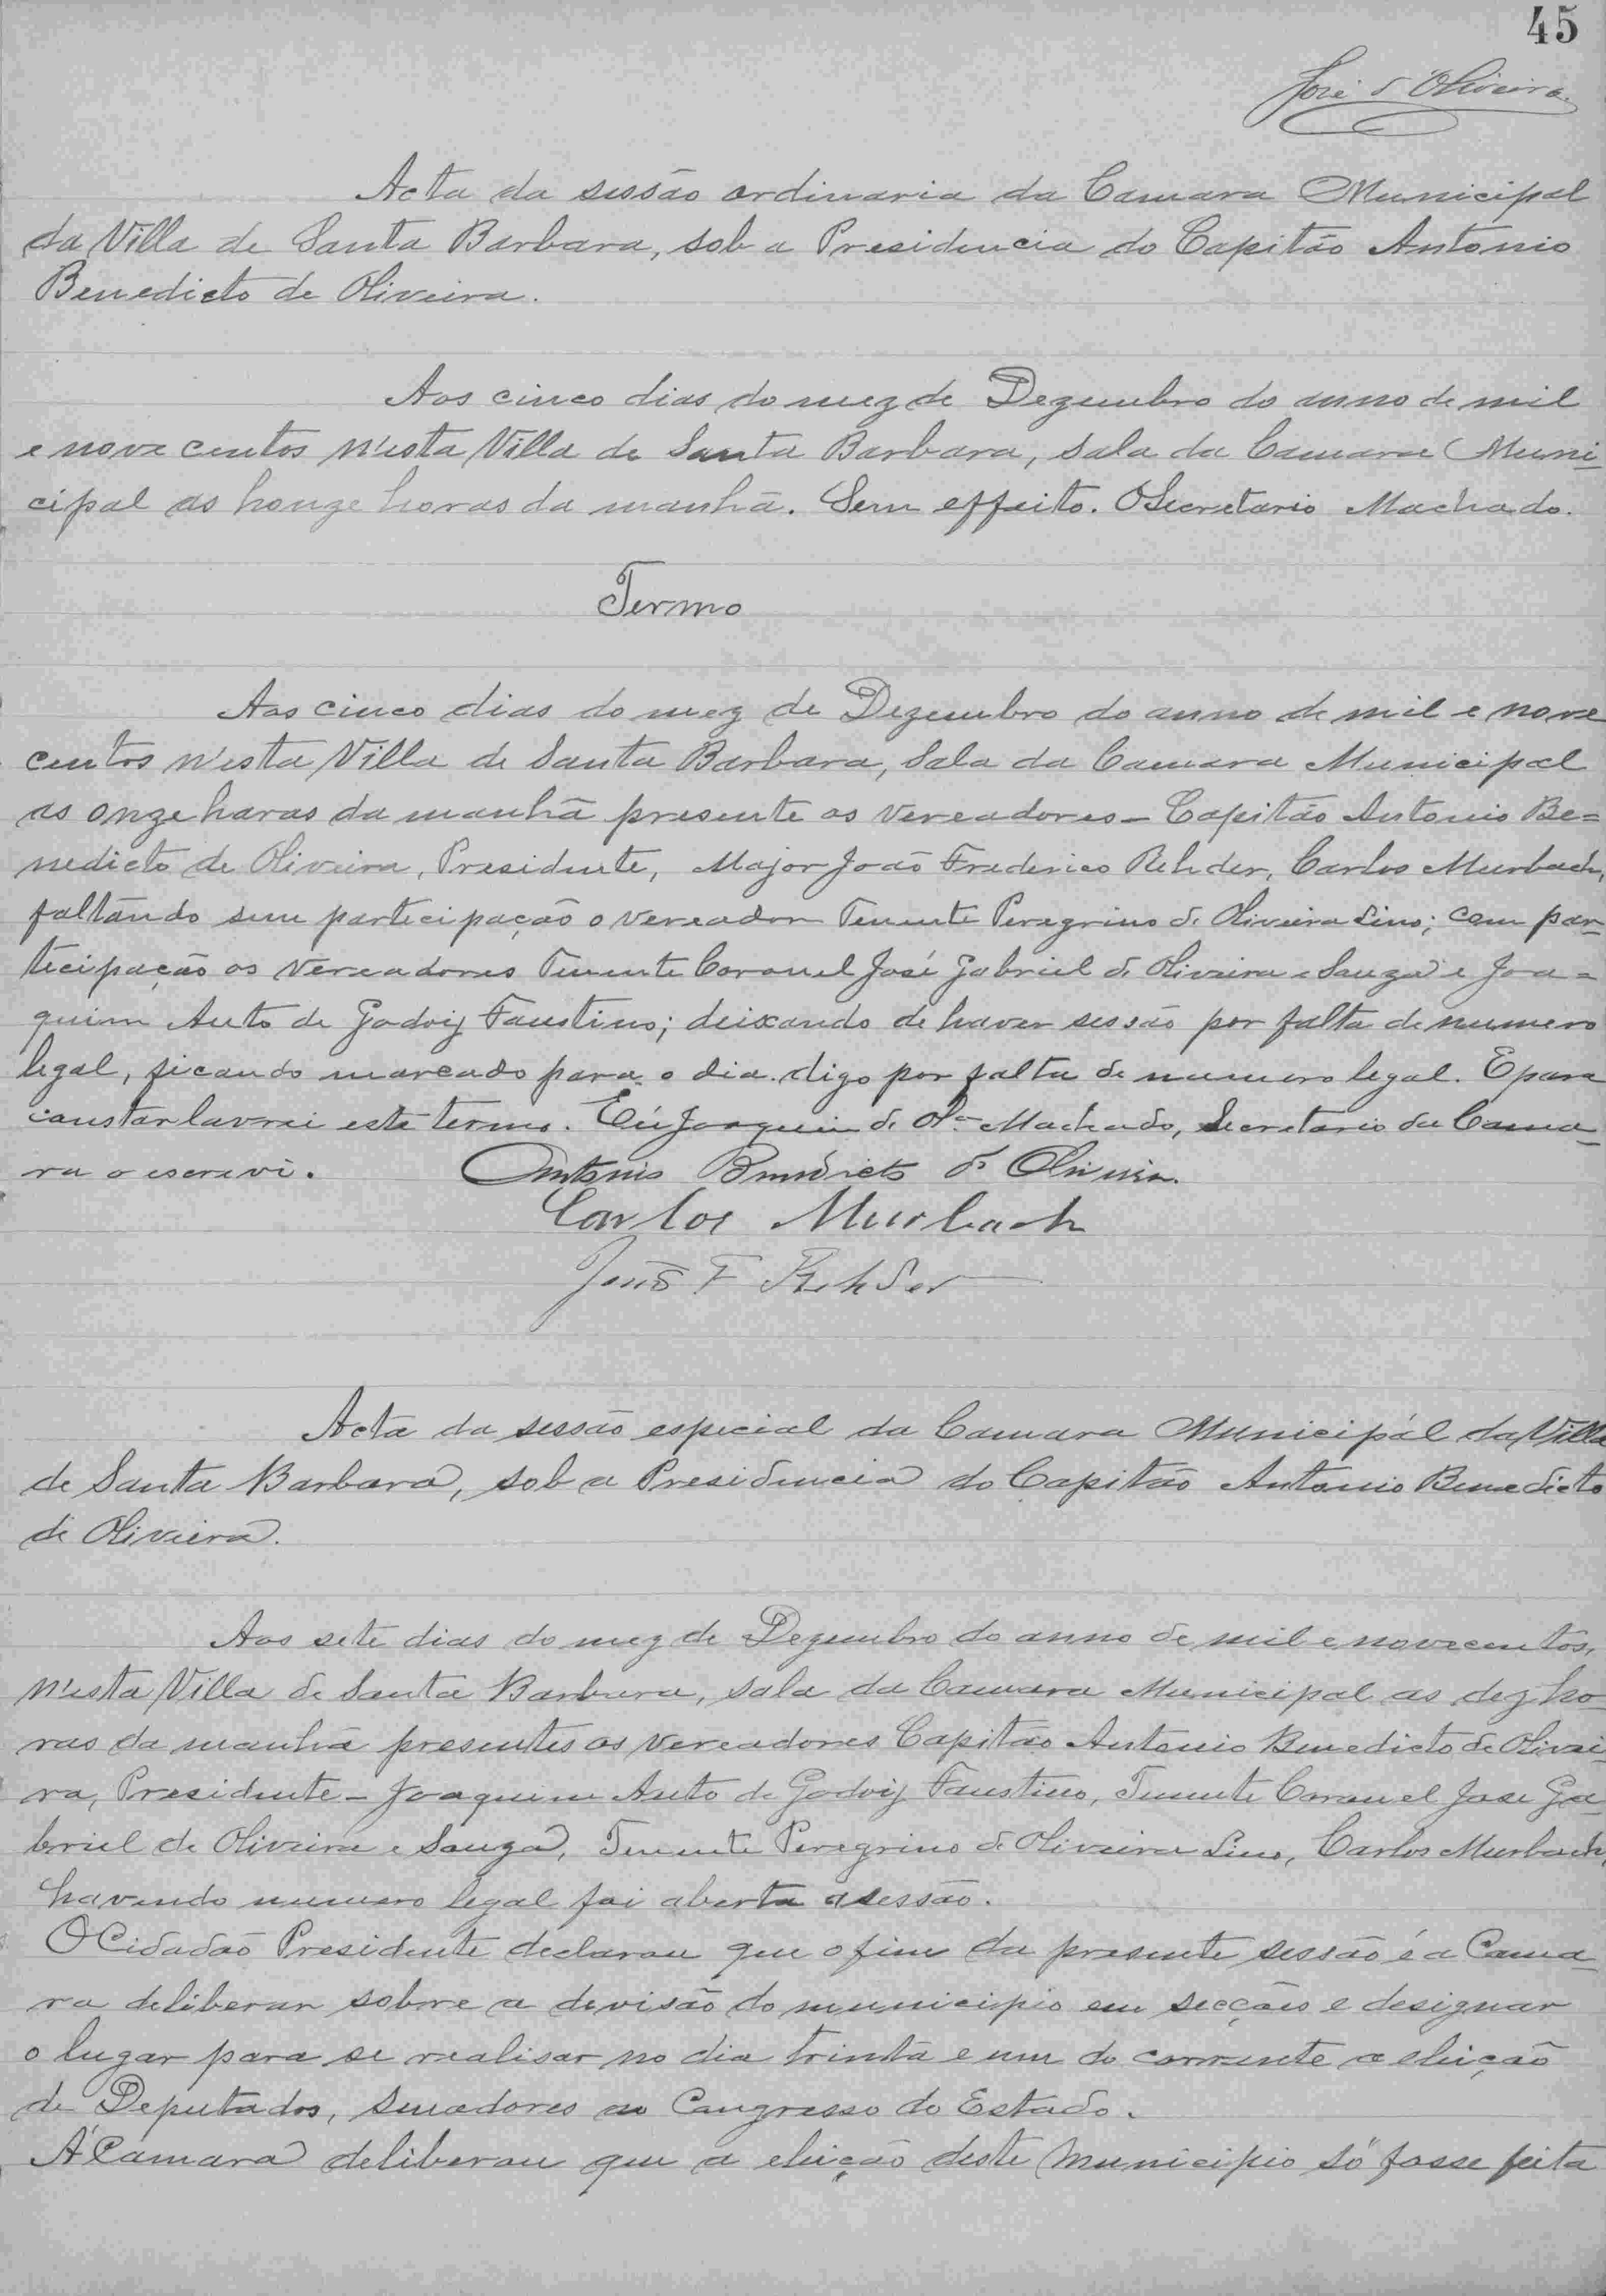 45
José d'Oliveira
Acta da sessão ordinaria da Camara Municipal
da Villa de Santa Barbara, sob a Presidencia do Capitão Antonio
Benedicto de Oliveira.
Aos cinco dias do mez de Dezembro do anno de mil
e nove centos n'esta Villa de Santa Barbara, sala da Camara Muni-
cipal as honze horas da manhã. Sem effeito. O Secretario Machado.
Termo
Aos cinco dias do mez de Dezembro do anno de mil e nove
centos n'esta Villa de Santa Barbara, Sala da Camara Municipal
as onze horas da manhã presente os vereadores - Capitão Antonio Be=
nedicto de Oliveira, Presidente, Major João Frederico Rehder, Carlos Murbach,
faltando sem participação o vereador Tenente Peregrino de Oliveira Lino; com par-
ticipação os vereadores Tenente Coronel José Gabriel de Oliveira e Souza e Joa=
quim Auto de Godoij Faustino; deixando de haver sessão por falta de numero
legal, ficando marcado para o dia. digo por falta de numero legal. E para
constar lavrei este termo. Eu Joaquim de Olª Machado, Secretario da Cama-
ra o escrevi. Antonio Benedicto de Oliveira.
Carlos Murbach
João F Rehder
Acta da sessão especial da Camara Municipal da Villa
de Santa Barbara, sob a Presidencia do Capitão Antonio Benedicto
de Oliveira.
Aos sete dias do mez de Dezembro do anno de mil e novecentos,
n'esta Villa de Santa Barbara, sala da Camara Municipal as dez ho-
ras da manhã presentes os vereadores Capitão Antonio Benedicto de Olivei-
ra, Presidente - Joaquim Auto de Godoij Faustino, Tenente Coronel José Ga-
briel de Oliveira e Souza, Tenente Peregrino de Oliveira Lino, Carlos Murbach,
havendo numero legal foi aberta a sessão.
O Cidadão Presidente declarou que o fim da presente sessão é a Cama-
ra deliberar sobre a devisão do municipio em secções e designar
o lugar para se realisar no dia trinta e um do corrente a eleição
de Deputados, senadores ao Congresso do Estado.
A Camara deliberou que a eleição deste Municipio só fosse feita